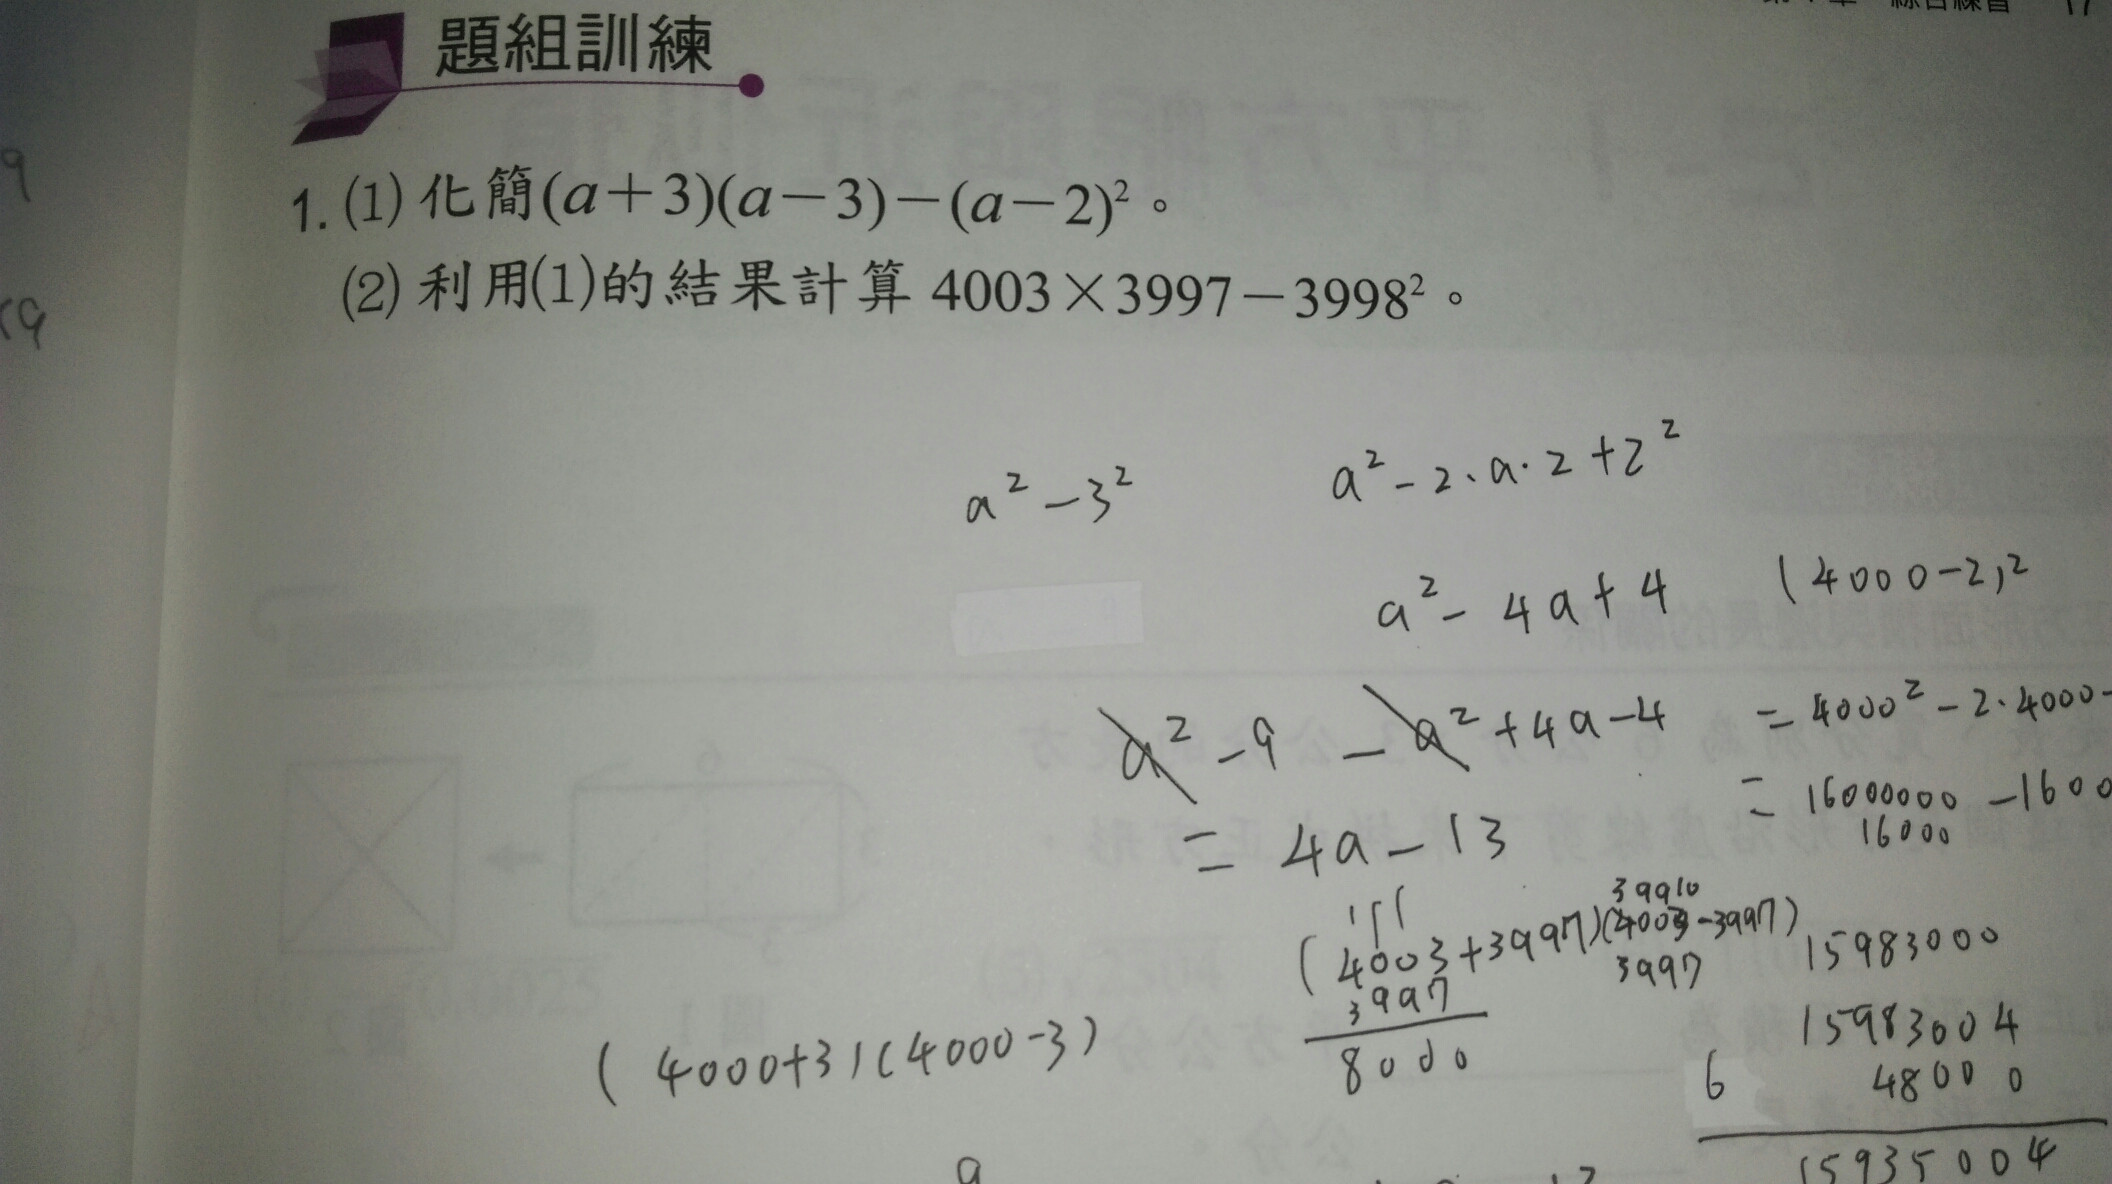 題組訓練
1. (1) 化簡(a+3)(a-3)-(a-2)²。
(2) 利用(1)的結果計算 4003×3997-3998²。
a²-3²
a²-2·a·2+2²
a²-4a+4
(4000-2)²
a²-9-a²+4a-4
=4000²-2·4000·
=4a-13
=16000000-1600
16000
(4003+3997)(4003-3997)
39910
3997
3997
8000
(4000+3)(4000-3)
15983000
15983004
6
48000
15935004
9